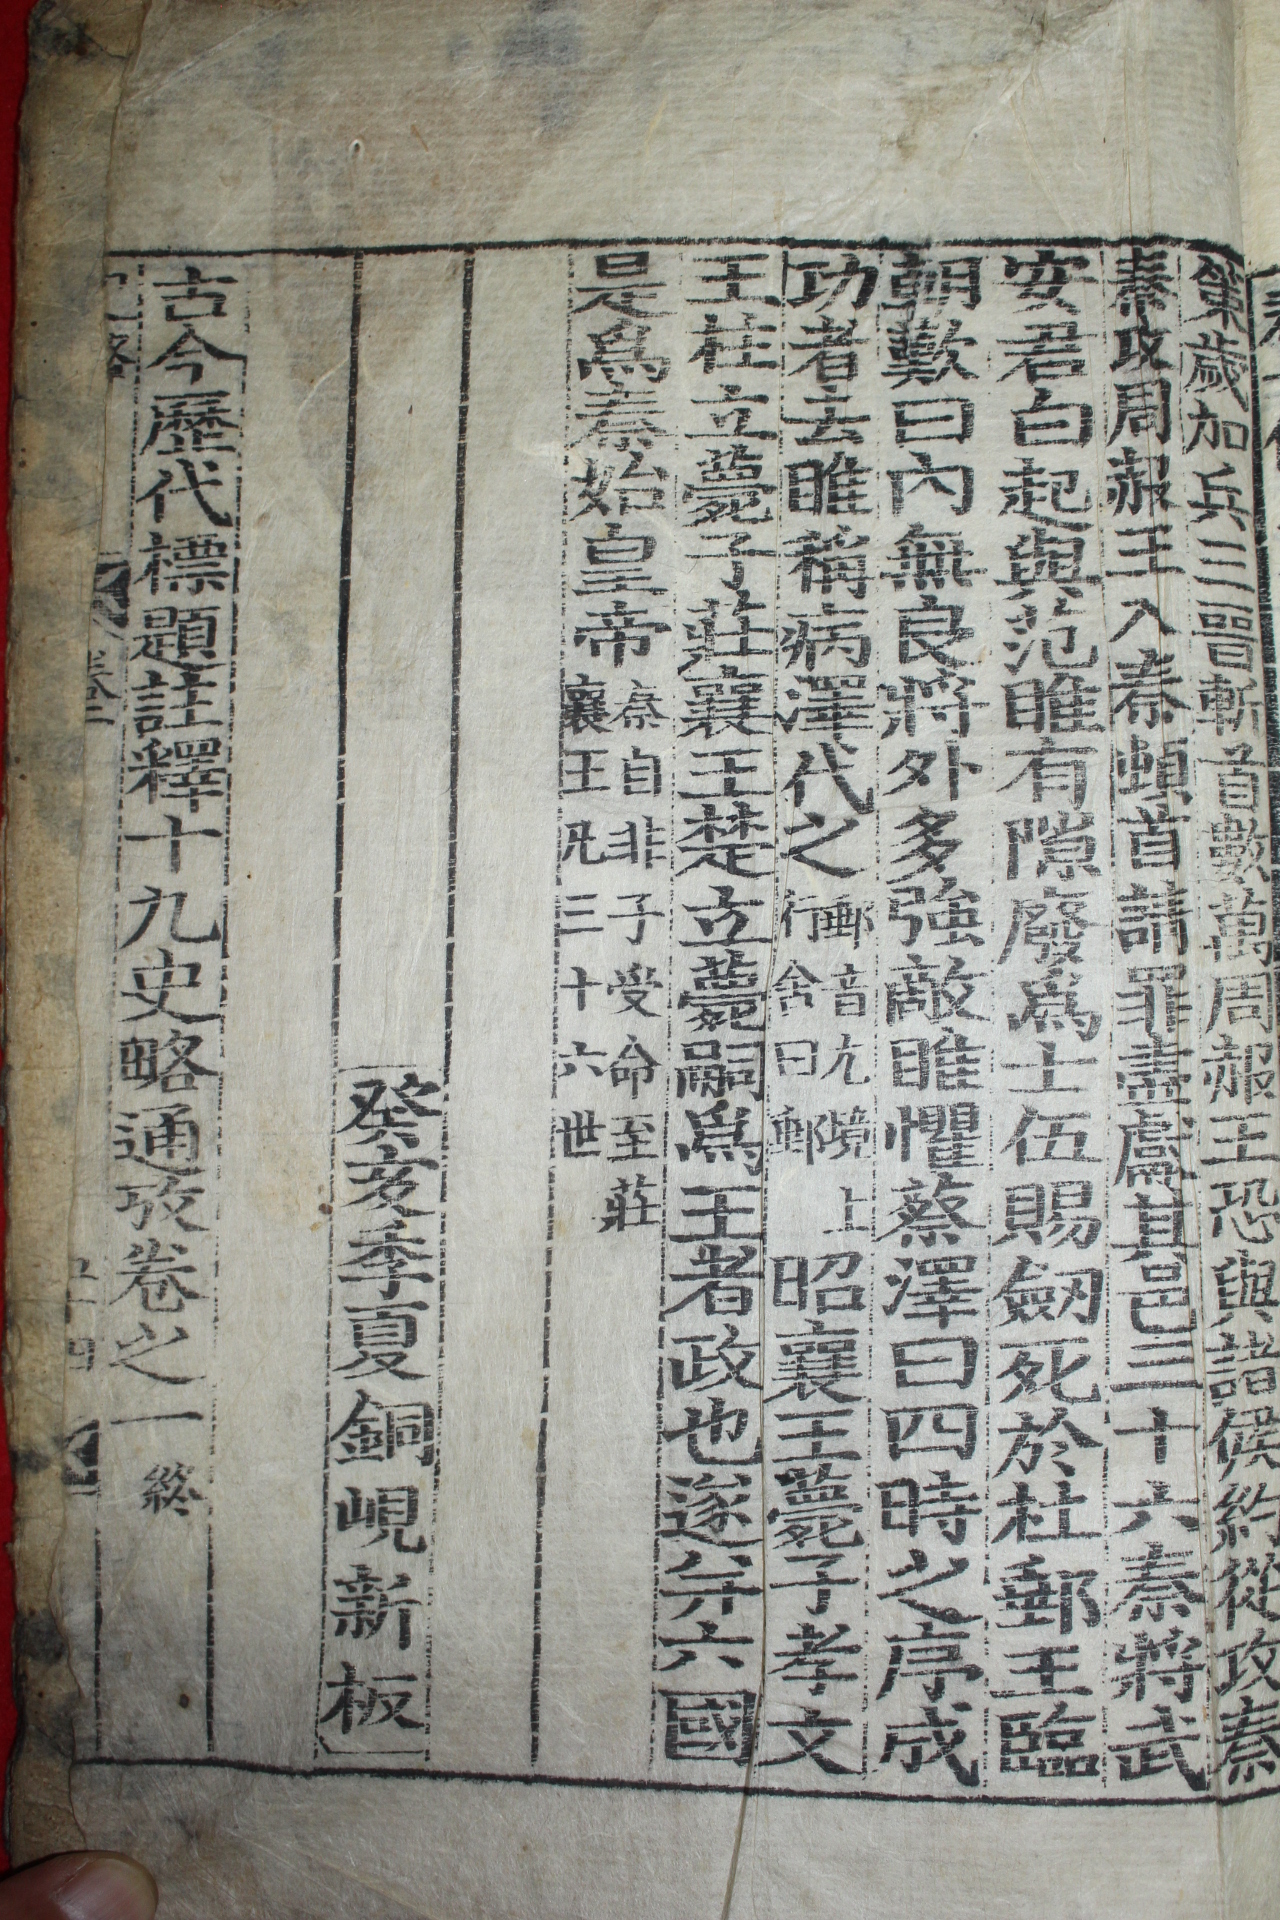 第歲加兵三晉斬首數萬周赧王恐與諸侯約從攻秦
秦攻周赧王入秦頓首請罪盡獻其邑三十六秦將武
安君白起與范睢有隙廢爲士伍賜劒死於杜郵王臨
朝歎曰內無良將外多強敵睢懼蔡澤曰四時之序成
功者去睢稱病澤代之郵音尢境上行舍曰郵昭襄王薨子孝文
王柱立薨子莊襄王楚立薨嗣爲王者政也遂并六國
是爲秦始皇帝秦自非子受命至莊襄王凡三十六世
癸亥季夏銅峴新板
古今歷代標題註釋十九史略通攷卷之一終